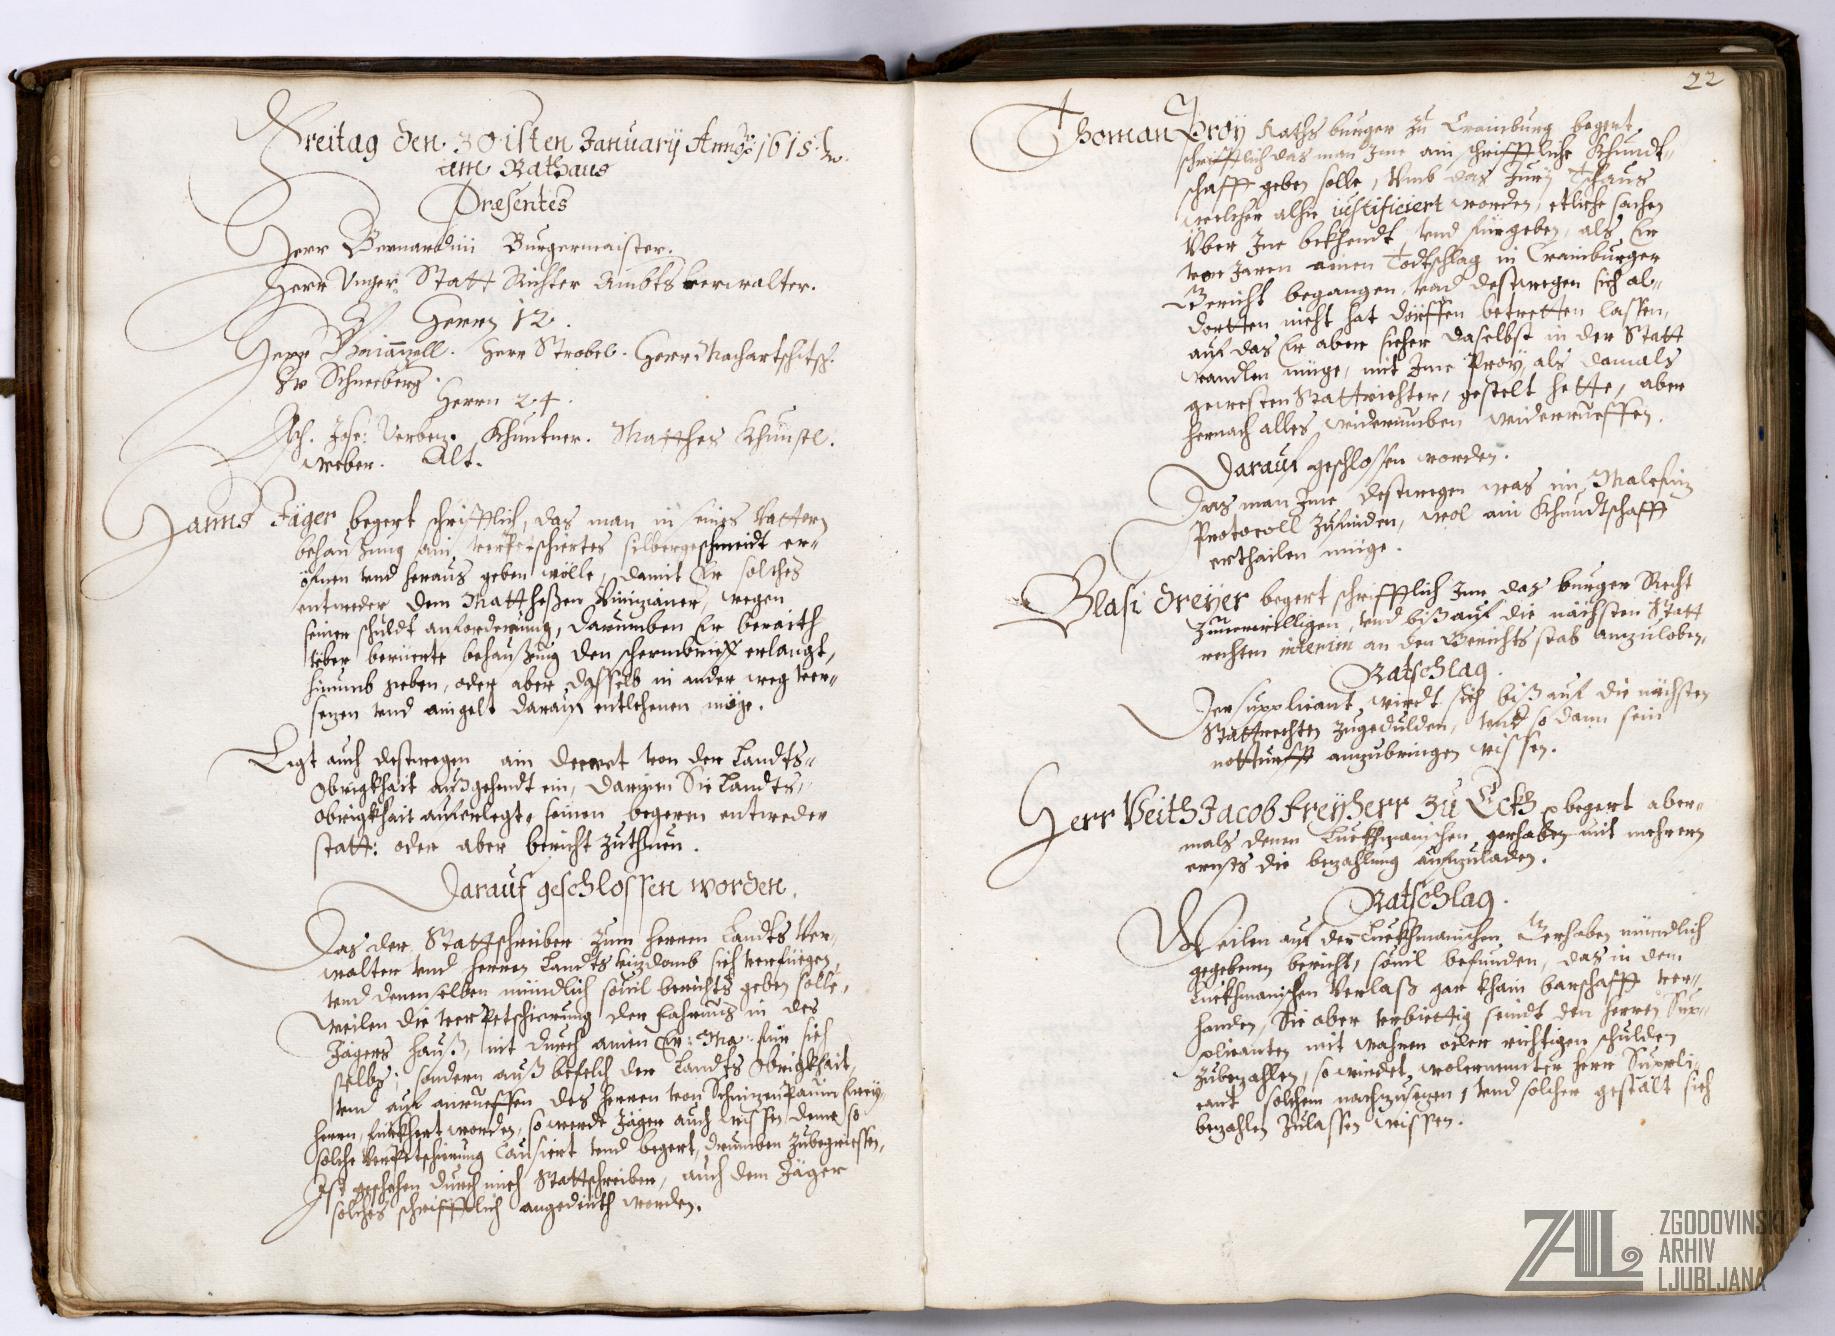 Freitag den 30isten January Anno 1615
am Rathaus
Presentes
Herr Bernardini Burgermaister.
Herr Unger Statt Richter Ambtsverwalter.
Herrn 12.
Herr Strobel. Herr
Hr Schneeberg.
Herrn 24.
Khuntner. Matthes
Weber. Alt.
Hanns Jäger begert schrifftlich, das man in seines Vattern
behausung ain verpetschiertes silbergeschmeidt er-
öfnen vnd heraus geben wölle, damit Er solches
entweder dem wegen
seiner schuldt anforderung, darumben Er beraith
vber beruerte behausung den schermbrief erlangt,
hinumb geben, oder aber dasselb in ander weg ver-
sezen vnd ain gelt darauf entlehenen möge.
Legt auch destwegen ain decret von der Landts-
Obrigkhait außgehendt ein, darinen Sie Landts-
Obrigkhait auferlegt, seinen begeren entweder
statt: oder aber bericht zuthuen.
Darauf geschlossen worden.
Das der Stattschreiber zum herren Landts Ver-
walter vnd herren Landts vizdomb sich verfüegen,
vnd denenselben mündlich souil berichts geben solle,
weilen die verpetschierung der fahrnus in des
Jägers hauß, nit durch ainen Er: Ma: für sich
selbs, sondern auß befelch der Landts Obrigkhait,
vnd auf anrueffen des herren von frey-
herrn, worden, so werde Jäger auch wissen, deme so
solche verpetschierung causiert vnd begert, drumben zubegruessen,
Ist geschehen durch mich Stattschreiber, auch dem Jäger
solches schrifftlich angedeuth worden.
22
Thoman Proy Rathsburger zu Crainburg begert
schrifftlich das man Ime ain schrifftliche Khundt-
schafft geben solle, Vmb das Jury
welcher alhie iustificiert worden, etliche sachen
Vber Ine bekhendt vnd fürgeben, als Er
vor Jaren ainen Todtschlag in Crainburger
Gericht begangen, vnd destwegen sich al-
dortten nicht hat dörffen betretten lassen,
auf das Er aber sicher daselbst in der Statt
wandlen müge, mit Ime Proy, als damals
gewesten Stattrichter, gestelt hette, aber
hernach alles widerumben widerrueffen.
Darauf geschlossen worden.
Das man Ime destwegen was im Malefiz
Protocoll zufinden, wol ain Khundtschafft
erthailen müge.
Blasi Dreyer begert schrifftlich Ime das burger Recht
zuuerwilligen, vnd biß auf die nächsten Statt
rechten interim an den Gerichts stab anzuloben.
Ratschlag.
Der supplicant wirdt sich biß auf die nächsten
Stattrechten zugedulden, vnd sodann sein
notturfft anzubringen wissen.
Herr Veith Jacob Freyherr zu Eckh begert aber-
mals denen gerhaben mit mehrern
ernsts die bezahlung aufzuladen.
Ratschlag.
Weilen auf der Gerhaben mündlich
gegebenen bericht, souil befunden, das in dem
Verlaß gar khain barschafft ver-
handen, Sie aber vrbiettig seindt den herren Sup-
plicanten mit wahren oder richtigen schulden
zubezahlen, so wirdet wolernenter herr Suppli-
cant solchem nachzusezen, vnd solcher gestalt sich
bezahlen zulassen wissen.
ZAL
ZGODOVINSKI
ARHIV
LJUBLJANA